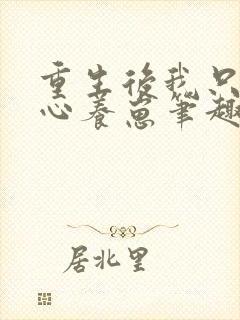 重生后我只
心养崽笔趣
居北里